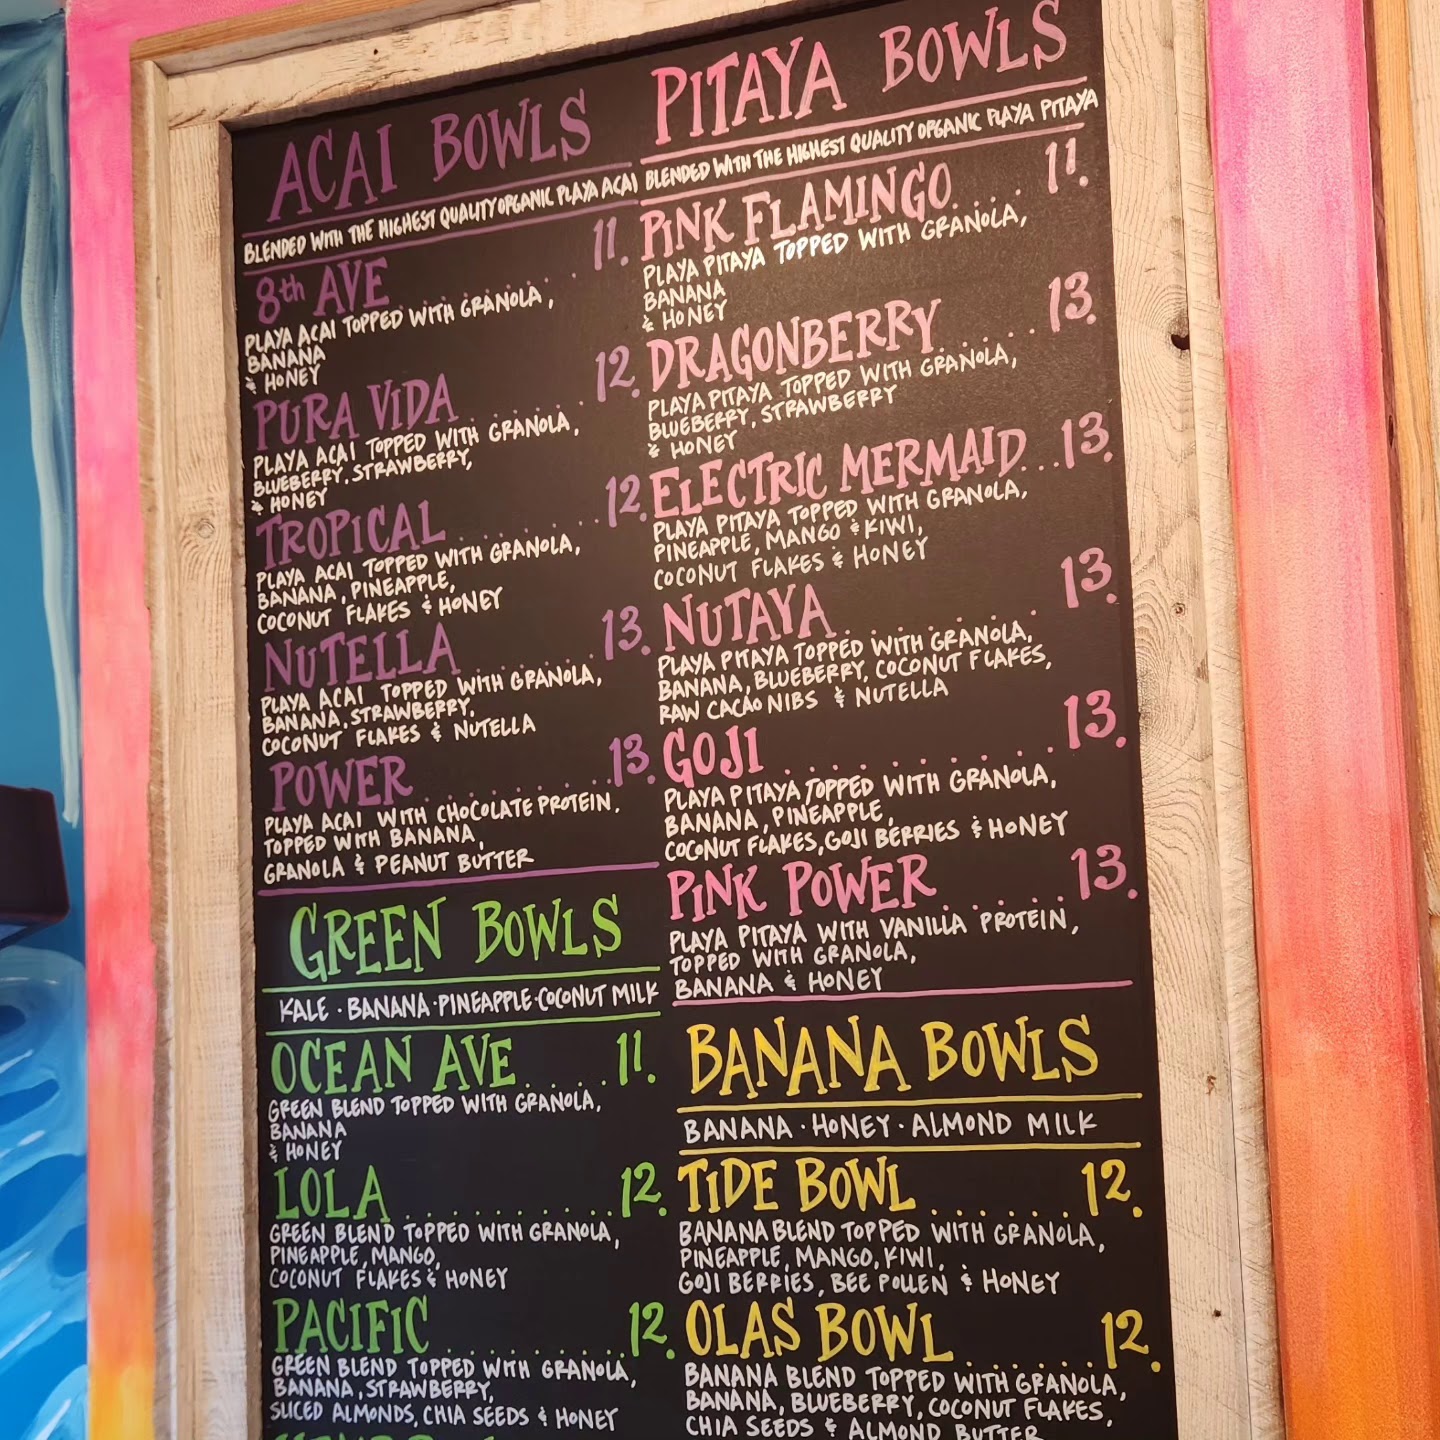 ACAI BOWLS
BLENDED WITH THE HIGHEST QUALITY ORGANIC PLAYA ACAI
8th AVE . . . . . . . . . 11.
PLAYA ACAI TOPPED WITH GRANOLA,
BANANA
& HONEY
PURA VIDA . . . . . . . . 12.
PLAYA ACAI TOPPED WITH GRANOLA,
BLUEBERRY, STRAWBERRY,
& HONEY
TROPICAL . . . . . . . . 12.
PLAYA ACAI TOPPED WITH GRANOLA,
BANANA, PINEAPPLE,
COCONUT FLAKES & HONEY
NUTELLA . . . . . . . . 13.
PLAYA ACAI TOPPED WITH GRANOLA,
BANANA, STRAWBERRY,
COCONUT FLAKES & NUTELLA
POWER . . . . . . . . . . 13.
PLAYA ACAI WITH CHOCOLATE PROTEIN,
TOPPED WITH BANANA,
GRANOLA & PEANUT BUTTER
GREEN BOWLS
KALE · BANANA · PINEAPPLE · COCONUT MILK
OCEAN AVE . . . . . 11.
GREEN BLEND TOPPED WITH GRANOLA,
BANANA
& HONEY
LOLA . . . . . . . . . . . 12.
GREEN BLEND TOPPED WITH GRANOLA,
PINEAPPLE, MANGO,
COCONUT FLAKES & HONEY
PACIFIC . . . . . . . . . 12.
GREEN BLEND TOPPED WITH GRANOLA,
BANANA, STRAWBERRY,
SLICED ALMONDS, CHIA SEEDS & HONEY
PITAYA BOWLS
BLENDED WITH THE HIGHEST QUALITY ORGANIC PLAYA PITAYA
PINK FLAMINGO . . . 11.
PLAYA PITAYA TOPPED WITH GRANOLA,
BANANA
& HONEY
DRAGONBERRY . . . . . 13.
PLAYA PITAYA TOPPED WITH GRANOLA,
BLUEBERRY, STRAWBERRY
& HONEY
ELECTRIC MERMAID . . . 13.
PLAYA PITAYA TOPPED WITH GRANOLA,
PINEAPPLE, MANGO & KIWI,
COCONUT FLAKES & HONEY
NUTAYA . . . . . . . . . 13.
PLAYA PITAYA TOPPED WITH GRANOLA,
BANANA, BLUEBERRY, COCONUT FLAKES,
RAW CACAO NIBS & NUTELLA
GOJI . . . . . . . . . . . 13.
PLAYA PITAYA TOPPED WITH GRANOLA,
BANANA, PINEAPPLE,
COCONUT FLAKES, GOJI BERRIES & HONEY
PINK POWER . . . . . . 13.
PLAYA PITAYA WITH VANILLA PROTEIN,
TOPPED WITH GRANOLA,
BANANA & HONEY
BANANA BOWLS
BANANA · HONEY · ALMOND MILK
TIDE BOWL . . . . . . . 12.
BANANA BLEND TOPPED WITH GRANOLA,
PINEAPPLE, MANGO, KIWI,
GOJI BERRIES, BEE POLLEN & HONEY
OLAS BOWL . . . . . . . 12.
BANANA BLEND TOPPED WITH GRANOLA,
BANANA, BLUEBERRY, COCONUT FLAKES,
CHIA SEEDS & ALMOND BUTTER